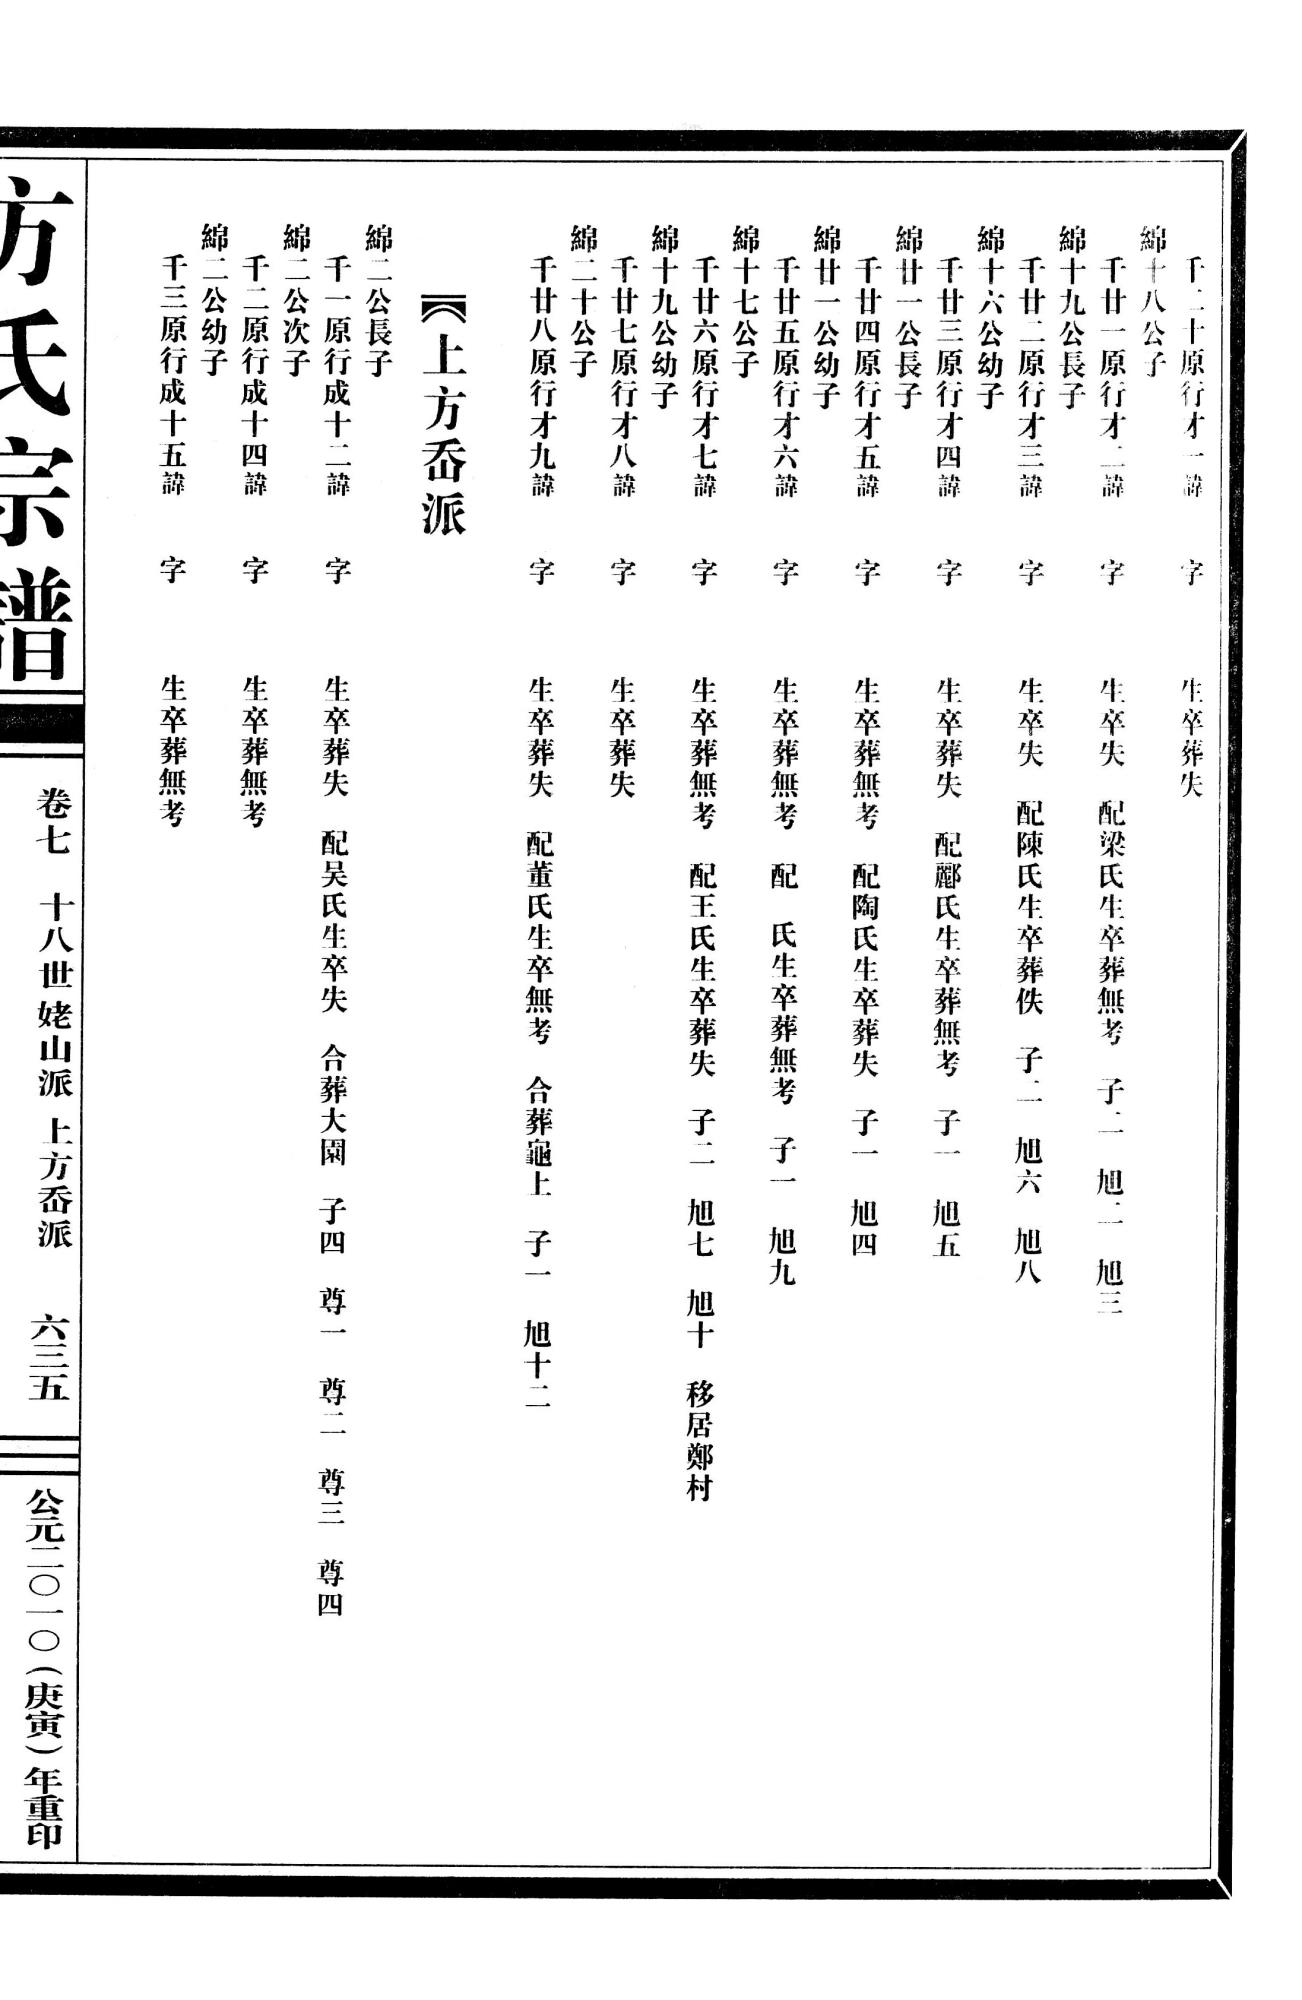 千二十原行才一諱　字　生卒葬失
綿十八公子
千廿一原行才二諱　字　生卒失　配梁氏生卒葬無考　子二　旭二　旭三
綿十九公長子
千廿二原行才三諱　字　生卒失　配陳氏生卒葬佚　子二　旭六　旭八
綿十六公幼子
千廿三原行才四諱　字　生卒葬失　配酈氏生卒葬無考　子一　旭五
綿廿一公長子
千廿四原行才五諱　字　生卒葬無考　配陶氏生卒葬失　子一　旭四
綿廿一公幼子
千廿五原行才六諱　字　生卒葬無考　配　氏生卒葬無考　子一　旭九
綿十七公子
千廿六原行才七諱　字　生卒葬無考　配王氏生卒葬失　子二　旭七　旭十　移居鄭村
綿十九公幼子
千廿七原行才八諱　字　生卒葬失
綿二十公子
千廿八原行才九諱　字　生卒葬失　配董氏生卒無考　合葬龜上　子一　旭十二
【上方岙派
綿二公長子
千一原行成十二諱　字　生卒葬失　配吴氏生卒失　合葬大園　子四　尊一　尊二　尊三　尊四
綿二公次子
千二原行成十四諱　字　生卒葬無考
綿二公幼子
千三原行成十五諱　字　生卒葬無考
方氏宗譜
卷七　十八世姥山派　上方岙派　六三五
公元二〇一〇(庚寅)年重印